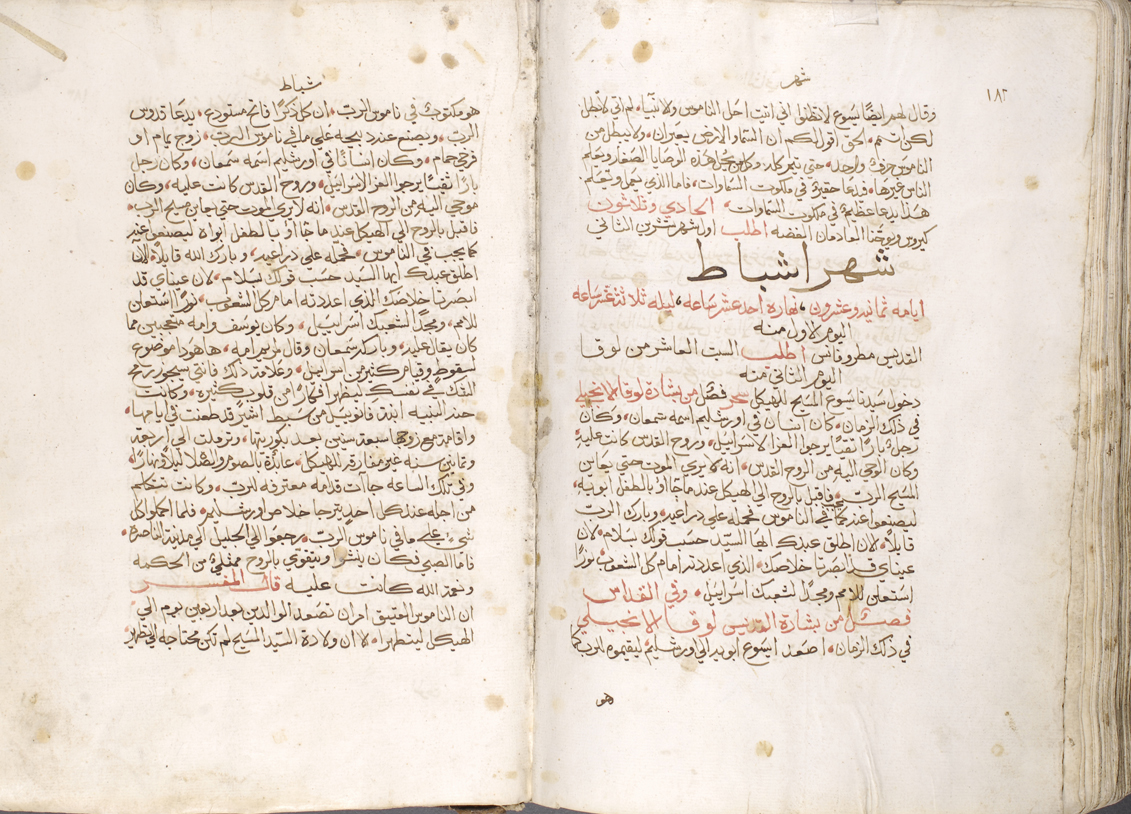 شهر
١٨٢
وقال لهم ايضًا يسوع لا تظنوا اني اتيت احل الناموس ولا نبيا، لم اتي لابطل
لكن اتمم، الحق اقول لكم ان السما والارض يعبران، ولا يبطل من
الناموس حرف واحد، حتى يتم كله، وكل من يحل هذه الوصايا الصغار ويعلم
الناس غيرها، يدعا حقيرا في ملكوت السماوات، فاما الذي يعمل ويعلم
هذا يدعا عظيما في ملكوت السماوات، الحادي وتلاتون
كيروس ويوحنا العادمان الفضه اطلب اول شهر تشرين التاني
شهر اشباط
ايامه تمانيه وعشرون، نهاره احد عشر ساعه، ليله تلاتة عشر ساعه
اليوم الاول منه
القديس اطلب السبت العاشر من لوقا
اليوم التاني منه
دخول سيدنا يسوع المسيح الهيكل سحر فصل من بشارة لوقا الانجيلي
في ذلك الزمان، كان انسان في اورشليم اسمه سمعان، وكان
رجل بارًا تقيًا يرجوا العزا لاسراييل، وروح القدس كانت عليه
وكان اوحي اليه من الروح القدس، انه لا يري الموت حتى يعاين
المسيح الرب، فاقبل بالروح الى الهيكل عند ما اتوا بالطفل ابويه
ليصنعوا عنه كما يجب في الناموس فحمله على دراعيه، وبارك الرب
قايلًا، لان اطلق عبدك ايها السيد حسب قولك بسلام، لان
عيناي قد ابصرتا خلاصك، الذي اعددته امام كل الشعوب نورًا
استعلن للامم ومجدًا لشعبك اسراييل، وفي القداس
فصل من بشارة القديس لوقا الانجيلي
في ذلك الزمان، اصعد ايسوع ابويه الي اورشليم ليقيموه للرب كما
هو
شباط
هو مكتوب في ناموس الرب، ان كل ذكرًا فاتح مستودع، يدعا قدوس
الرب، ويصنع عنه دبيحه على ما في ناموس الرب، زوج يمام او
فرخي حمام، وكان انسانًا في اورشليم اسمه سمعان، وكان رجل
بارًا تقيًا يرجوا العزا لاسراييل، وروح القدس كانت عليه، وكان
موحي اليه من الروح القدس، انه لا يري الموت حتى يعاين مسيح الرب،
فاقبل بالروح الى الهيكل عند ما اتوا بالطفل ابواه ليصنعوا عنه
كما يجب في الناموس، فحمله على دراعيه، وبارك الله قايلًا، لان
اطلق عبدك ايها السيد حسب قولك بسلام، لان عيناي قد
ابصرتا خلاصك الذي اعددته امام كل الشعوب، نورًا استعلن
للامم، ومجدًا لشعبك اسراييل، وكان يوسف وامه متعجبين مما
كان يقال عليه، وباركه سمعان وقال لمريم امه، ها هودا موضوع
لسقوط وقيام كتير من اسراييل، وعلامة فانتي سيجوز رمح
الشك في نفسك ليظهر افكارًا من قلوب كتيره، وكانت
حنه النبيه ابنة فانوييل من سبط اشير قد طعنت في ايامها،
واقامة مع زوجها سبعة سنين بعد بكوريتها، وترملت الي اربعة
وتمانين سنه غير مفارقه للهيكل، عابدة بالصوم والصلا ليلًا ونهارًا،
وفي تلك الساعه جاات قدامه معترفه للرب، وكانت تتكلم
من اجله عند كل احد يترجا خلاص اورشليم، فلما اكملوا كل
شي على ما في ناموس الرب، رجعوا الى الجليل الي مدينة الناصرة،
فاما الصبي فكان ينشوا ويتقوي بالروح ممتلي من الحكمه
ونعمة الله كانت عليه قال المفسر
ان الناموس العتيق امر ان تصعد الوالدين بعد اربعين يوم الى
الهيكل ليتطهرا، لا ان ولادة السيد المسيح لم تكن محتاجه الى تطهير